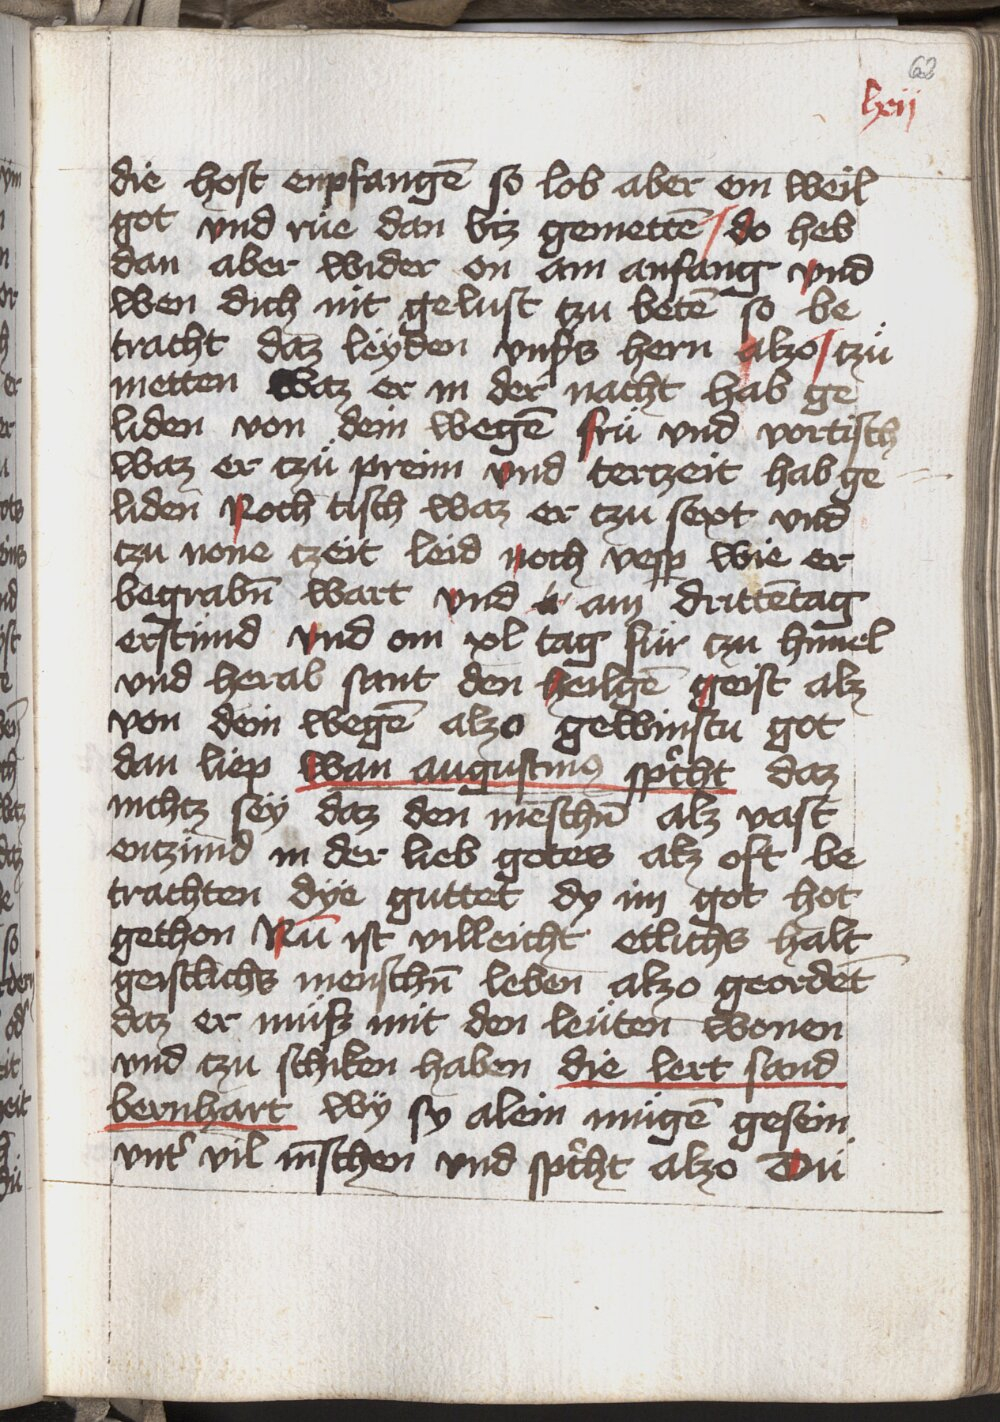 62
lxij
die host enpfangē so lob aber ein weil
got vnd rüe dan biz gemettē / do heb
dan aber wider on am anfang vnd
wen dich nit gelust czu betē so be
tracht daz leÿden vnsers hern alzo / czü
metten waz er in der nacht hab ge
liden von dein wegē frü vnd vortisch
waz er czü preim vnd tertzeit hab ge
liden Noch tisch waz er czu sext vnd
czu none czeit leid noch vesp wie er
begrabn̄ wart vnd am drittētag
erstünd vnd om xl tag für czu himel
vnd herab sant den heilgē geist alz
von dein wegē alzo gewinstu got
dan liep wan augustinus spricht daz
nichtz sëy daz den mēschn̄ alz vast
entzünd in der lieb gotes alz oft be
trachten dÿe guttet dy im got hot
gethon Nü ist villeicht etlichs halt
geistlichs menschn̄ leben alzo geordēt
daz er müß mit den leüten wonen
vnd czü schiken haben die lert sand
bernhart wÿ sy alein mügē gesein
vnt' vil mēschen vnd spricht alzo Dü